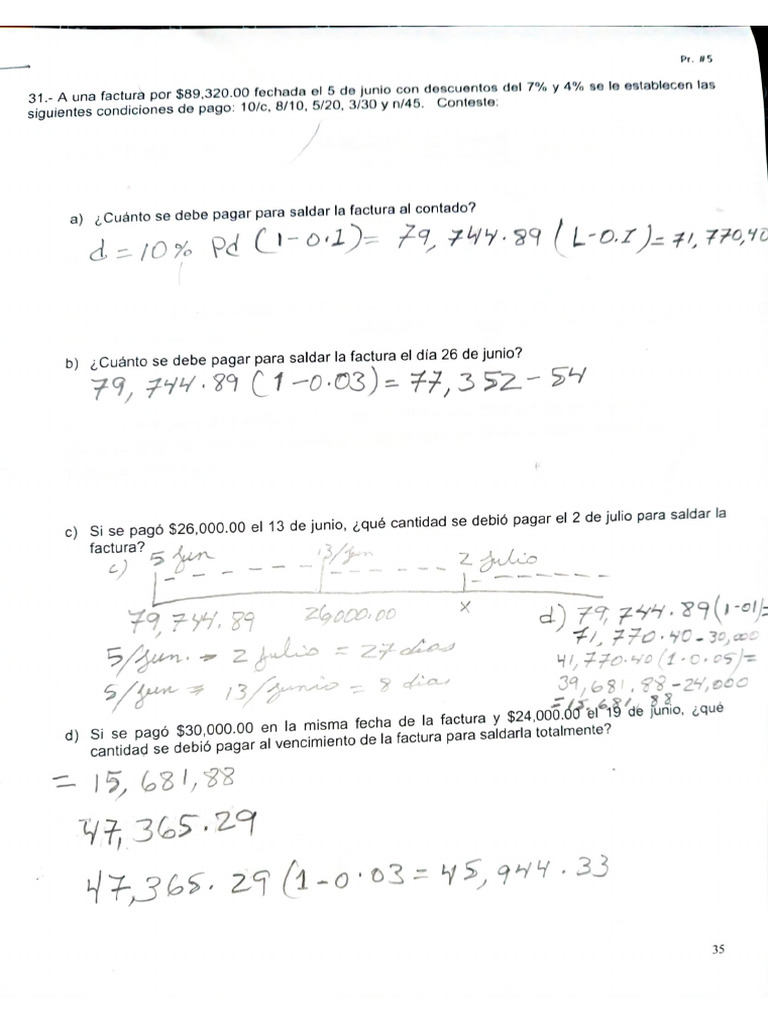 Pr. #5
31.- A una factura por $89,320.00 fechada el 5 de junio con descuentos del 7% y 4% se le establecen las
siguientes condiciones de pago: 10/c, 8/10, 5/20, 3/30 y n/45. Conteste:
a) ¿Cuánto se debe pagar para saldar la factura al contado?
d = 10% Pd (1-0.1)= 79,744.89 (L-0.I)= 71,770,40
b) ¿Cuánto se debe pagar para saldar la factura el día 26 de junio?
79,744.89 (1-0.03)= 77,352-54
c) Si se pagó $26,000.00 el 13 de junio, ¿qué cantidad se debió pagar el 2 de julio para saldar la
factura?
c) 5 Jun 13/Jun 2 Julio
79,744.89 26000.00 x
d) 79,744.89(1-01)=
71,770.40-30,000
41,770.40(1-0.05)=
39,681.88-24,000
=15,681.88
5/Jun. → 2 Julio = 27 dias
5/Jun = 13/Junio = 8 dias
d) Si se pagó $30,000.00 en la misma fecha de la factura y $24,000.00 el 19 de junio, ¿qué
cantidad se debió pagar al vencimiento de la factura para saldarla totalmente?
= 15,681,88
47,365.29
47,365.29 (1-0.03 = 45,944.33
35